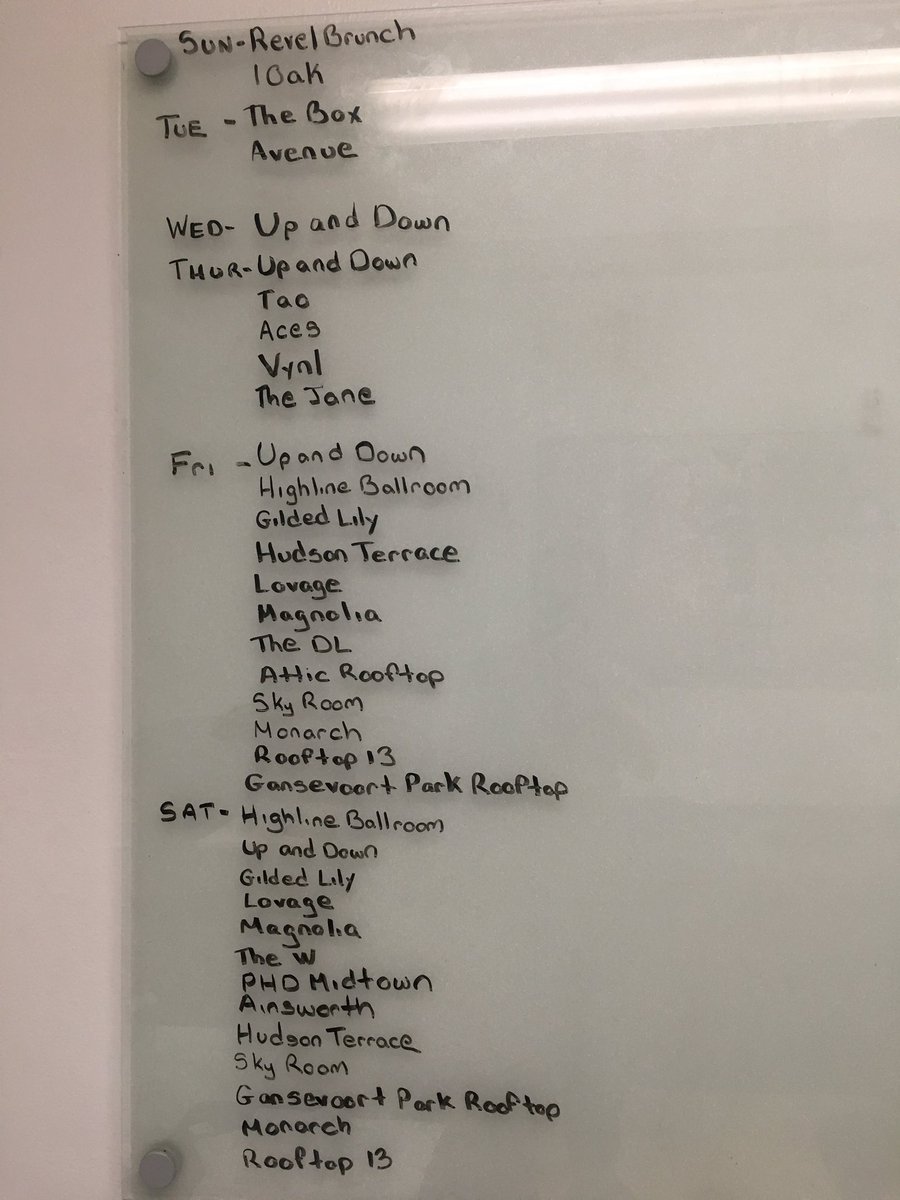 SUN-Revel Brunch
1Oak
TUE - The Box
Avenue
WED- Up and Down
THUR-Up and Down
Tao
Aces
Vynl
The Jane
Fri - Up and Down
Highline Ballroom
Gilded Lily
Hudson Terrace
Lovage
Magnolia
The DL
Attic Rooftop
Sky Room
Monarch
Rooftop 13
Gansevoort Park Rooftop
SAT- Highline Ballroom
Up and Down
Gilded Lily
Lovage
Magnolia
The W
PHD Midtown
Ainsworth
Hudson Terrace
Sky Room
Gansevoort Park Rooftop
Monarch
Rooftop 13